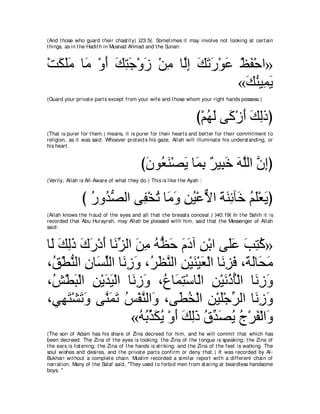 (And those who guard their chastity) ﴿23:5﴾. Sometimes it may involve not looking at certain things, as in the Hadith in Musnad Ahmad and the Sunan:
«احْفَظْ عَوْرَتَكَ إِلَّا مِنْ زَوْجَتِكَ أَوْ مَا مَلَكَتْ
يَمِينُكَ»
(Guard your private parts except from your wife and those whom your right hands possess.)
(ذلِكَ أَزْكَى لَهُمْ)
(That is purer for them.) means, it is purer for their hearts and better for their commitment to religion, as it was said: Whoever protects his gaze, Allah will illuminate his understanding, or his heart.
(إِنَّ اللَّهَ خَبِيرٌ بِمَا يَصْنَعُونَ)
(Verily, Allah is All-Aware of what they do.) This is like the Ayah:
(يَعْلَمُ خَآئِنَةَ الاٌّعْيُنِ وَمَا تُخْفِى الصُّدُورُ )
(Allah knows the fraud of the eyes and all that the breasts conceal.) ﴿40:19﴾ In the Sahih it is recorded that Abu Hurayrah, may Allah be pleased with him, said that the Messenger of Allah said:
«كُتِبَ عَلَى ابْنِ آدَمَ حَظُّهُ مِنَ الزِّنَا أَدْرَكَ ذَلِكَ لَا
مَحَالَةَ، فَزِنَا الْعَيْنَيْنِ النَّظَرُ، وَزِنَا اللِّسَانِ النُّطْقُ،
وَزِنَا الْأُذُنَيْنِ الْاسْتِمَاعُ، وَزِنَا الْيَدَيْنِ الْبَطْشُ،
وَزِنَا الرِّجْلَيْنِ الْخُطَى، وَالنَّفْسُ تَمَنَّى وَتَشْتَهِي،
وَالْفَرْجُ يُصَدِّقُ ذَلِكَ أَوْ يُكَذِّبُهُ»
(The son of Adam has his share of Zina decreed for him, and he will commit that which has been decreed. The Zina of the eyes is looking; the Zina of the tongue is speaking; the Zina of the ears is listening; the Zina of the hands is striking; and the Zina of the feet is walking. The soul wishes and desires, and the private parts confirm or deny that.) It was recorded by Al-Bukhari without a complete chain. Muslim recorded a similar report with a different chain of narration. Many of the Salaf said, "They used to forbid men from staring at beardless handsome boys. "